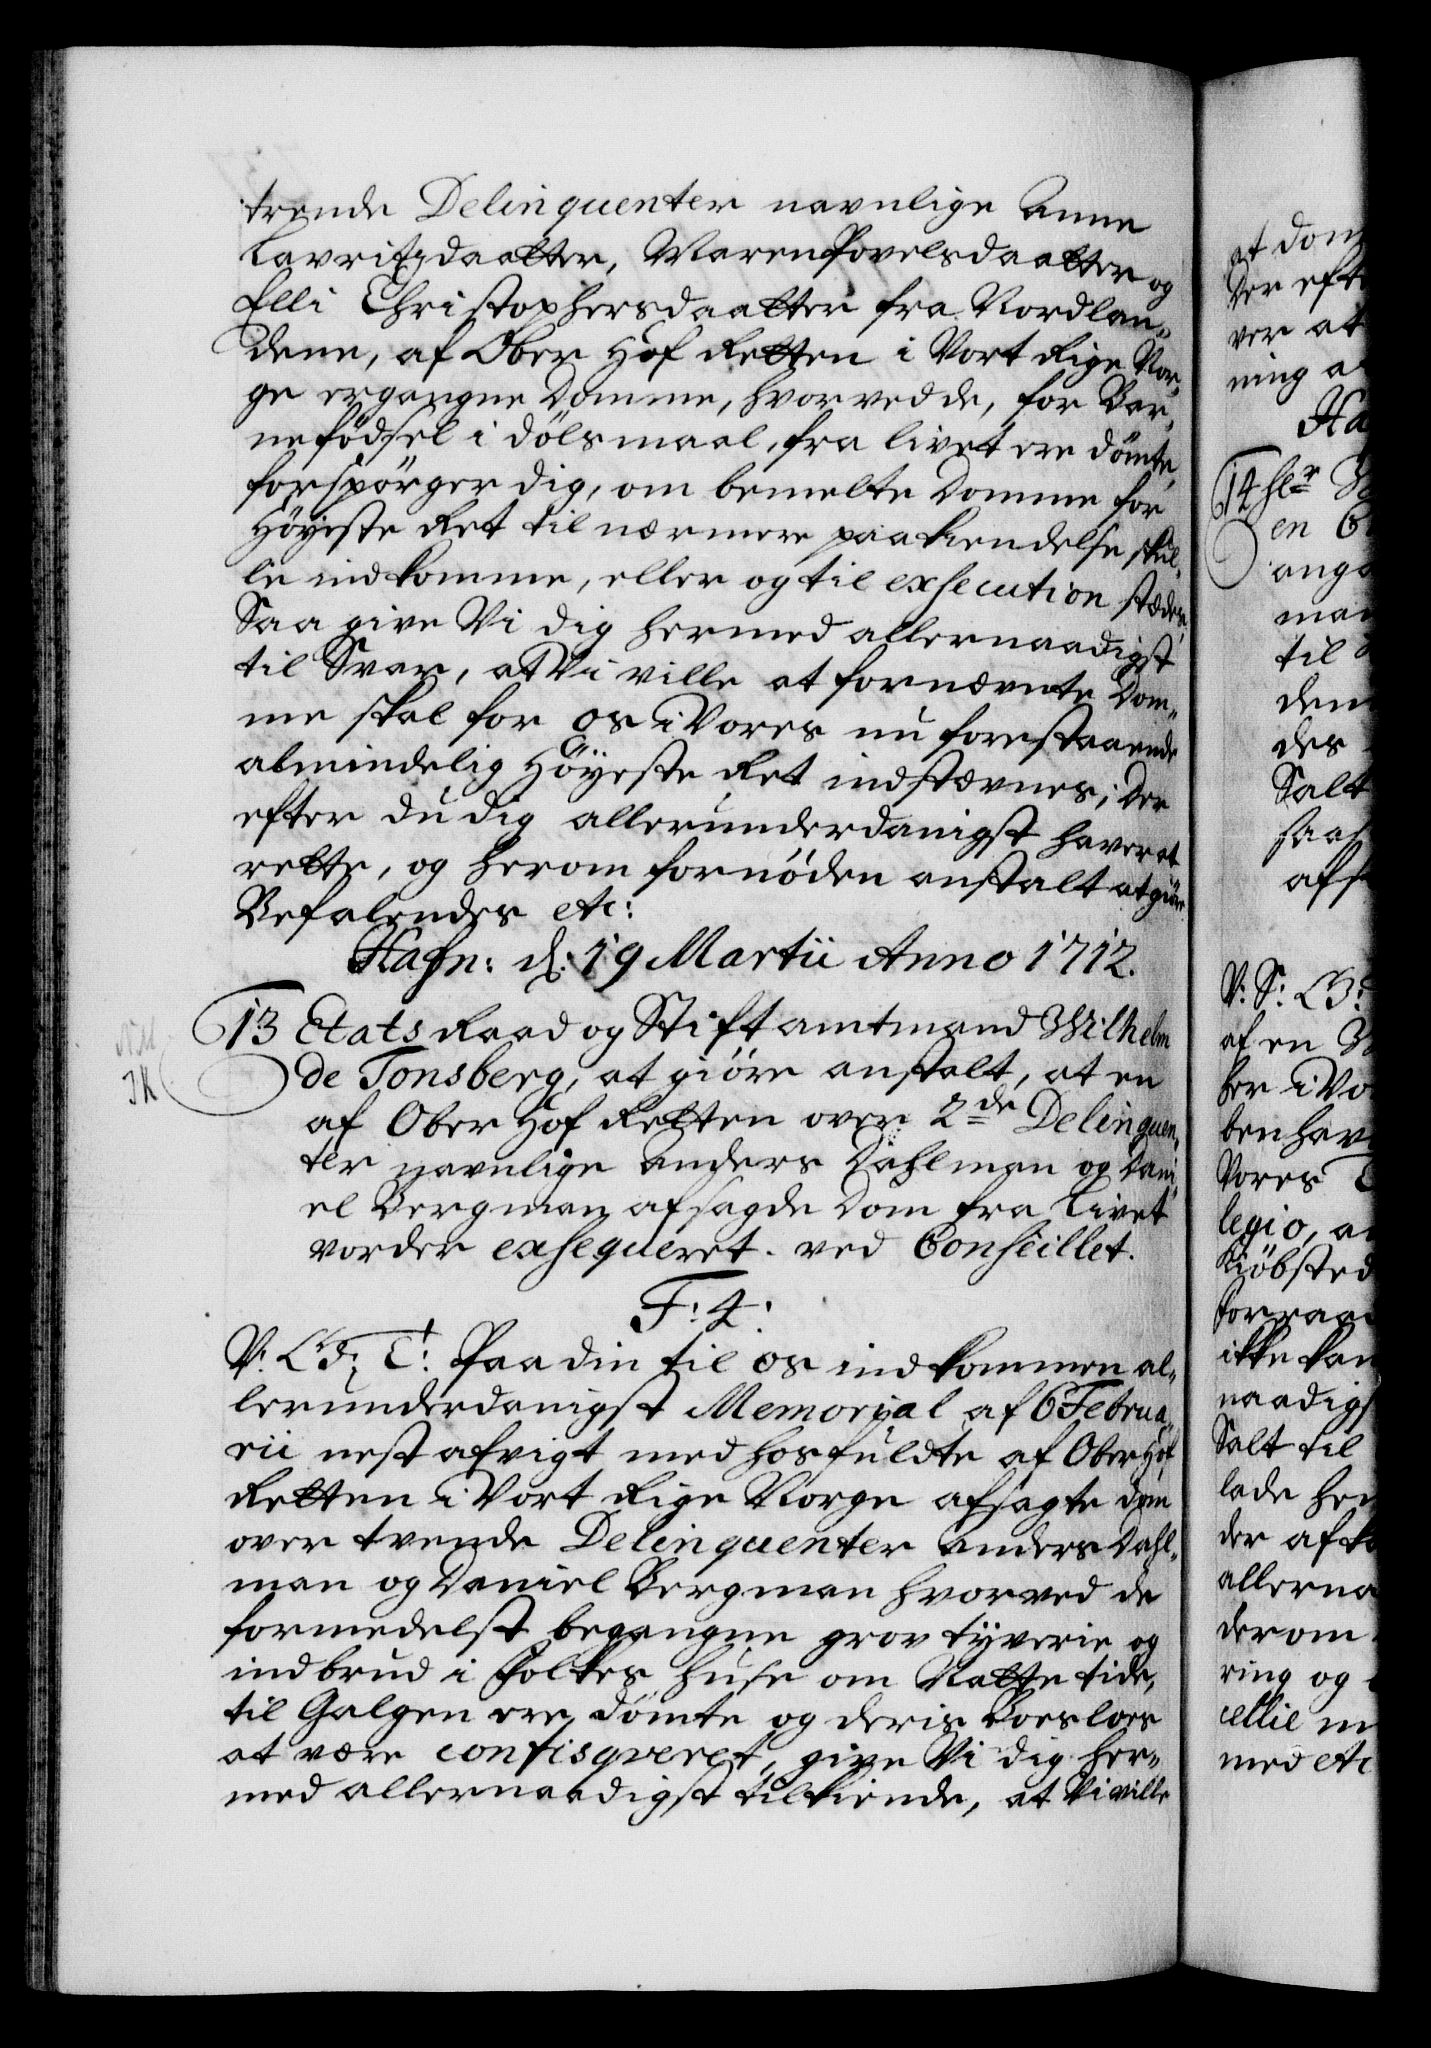 trende Delinquenter navnlige Anne
Lavritzdaatter, Maren Povelsdaatter og
Elli Christophersdaatter fra Nordlan„
dene, af Ober Hof Retten i Vort Rige Nor„
ge ergangne Domme, hvorved de, for Bar„
nefödsel i dölsmaal, fra livet ere dömte,
forspörger dig, om bemelte Domme for
Höyiste Ret til nærmere paakiendelse skul„
le indkomme, eller og til exsecution stædes,
Saa give Vi dig hermed allernaadigst
til Svar, at Vi ville at fornævnte Dom„
me skal for os i Vores nu forestaaende
almindelig Höyeste Ret indstævnes; Der
efter du dig allerunderdanigst haver at
rette, og herom fornöden anstalt at giöre
Befalendes etc:
Hafn: d: 19 Martii Anno 1712.
13 Etats Raad og Stiftamtmand Wilhelm
de Tonsberg, at giöre anstalt, at en
JK
af Ober Hof Retten over 2de Delinquen„
ter navnlige Anders Dahlman og Dani„
el Bergman afsagde Dom fra Livet
vorder exseqveret. ved Conseillet.
F: 4:
V: G: T: Paa din til os indkommen al„
lerunderdanigst Memorial af 6 Februa„
rii nestafvigt med hosfuldte af Ober Hof
Retten i Vort Rige Norge afsagte dom
over tvende Delinquenter Anders Dahl„
man og Daniel Bergman hvorved de
formedelst begangne grov tyverie og
indbrud i Folkes huse om Natte tide,
til Galgen ere dömte og deris Boeslors
at være confisqveret, give Vi dig her„
med allernaadigst tilkiende, at Vi ville
at dom
Der eft
ver at
ning a
Ha
14 hl:r
en
ang
man
til
den
des
Salt
saa
afs
V: S: G:
af en
her i Vo
benhav
Vores
legio, a
Kiöbsted
forraad
ikke kan
naadigs
Salt til
lade hen
der afk
allerna
derom
ring og
cellie m
med etc